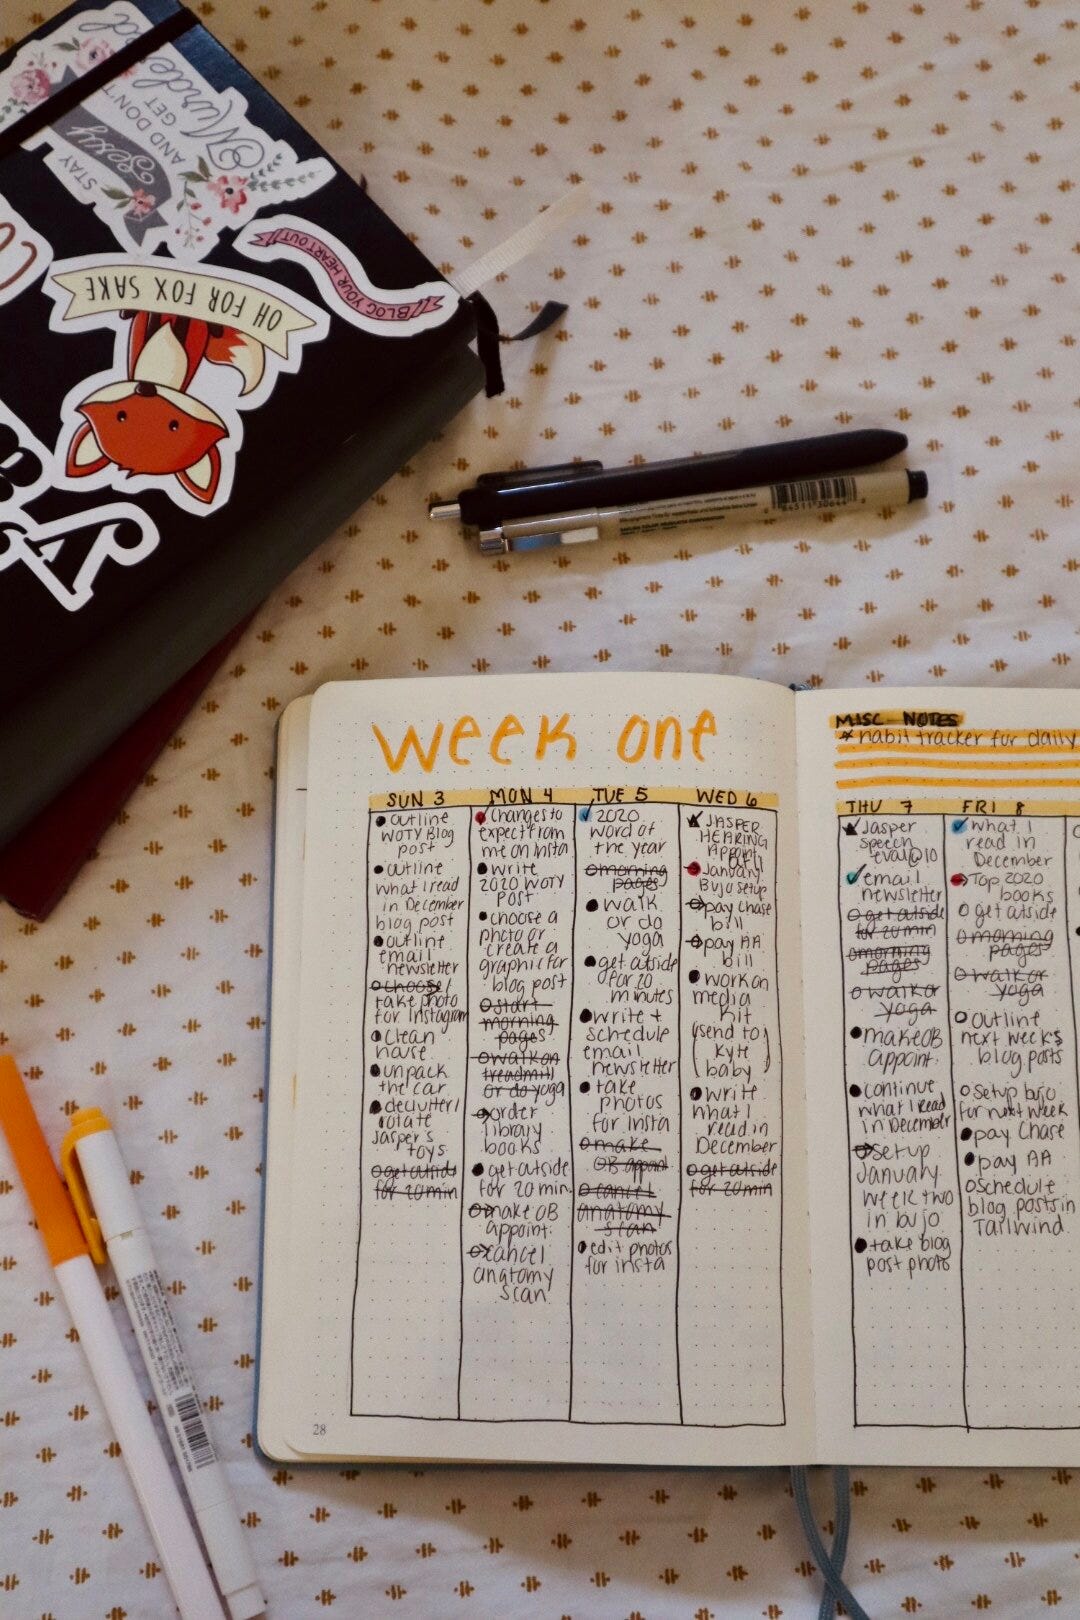 STAY
Sexy
AND DON'T
GET
Murdered
BLOG YOUR HEART OUT
OH FOR FOX SAKE
week one
SUN 3
● outline
WOTY Blog
post
● outline
what i read
in December
blog post
● outline
email
newsletter
choose/
take photo
for Instagram
clean
house
● unpack
the car
● declutter/
rotate
Jasper's
toys
get outside
for 20 min
MON 4
Changes to
expect from
me on Insta
● write
2020 WOTY
POST
● choose a
photo or
create a
graphic for
blog post
start
morning
pages
walk on
treadmill
or do yoga
order
library
books
● get outside
for 20 min
make OB
appoint.
cancel
anatomy
scan
TUE 5
2020
word of
the year
morning
pages
● walk
or do
yoga
● get outside
for 20
minutes
● write +
schedule
email
newsletter
● take
photos
for insta
make
OB appoint
cancel
anatomy
scan
edit photos
for insta
WED 6
JASPER
HEARING
Appoint
at 11
January
Bujo setup
pay chase
bill
pay AA
bill
● work on
media
kit
(send to
kyte
baby)
● write
what I
read in
December
get outside
for 20 min
MISC NOTES
* habit tracker for daily
THU 7
Jasper
speech
eval@10
email
newsletter
get outside
for 20 min
morning
pages
walk or
yoga
● make OB
appoint.
● continue
what I read
in December
setup
January
week two
in bujo
● take blog
post photo
FRI 8
what I
read in
December
Top 2020
books
o get outside
morning
pages
walk or
yoga
o outline
next week's
blog posts
o setup bujo
for next week
● pay Chase
● pay AA
o schedule
blog posts in
Tailwind
28